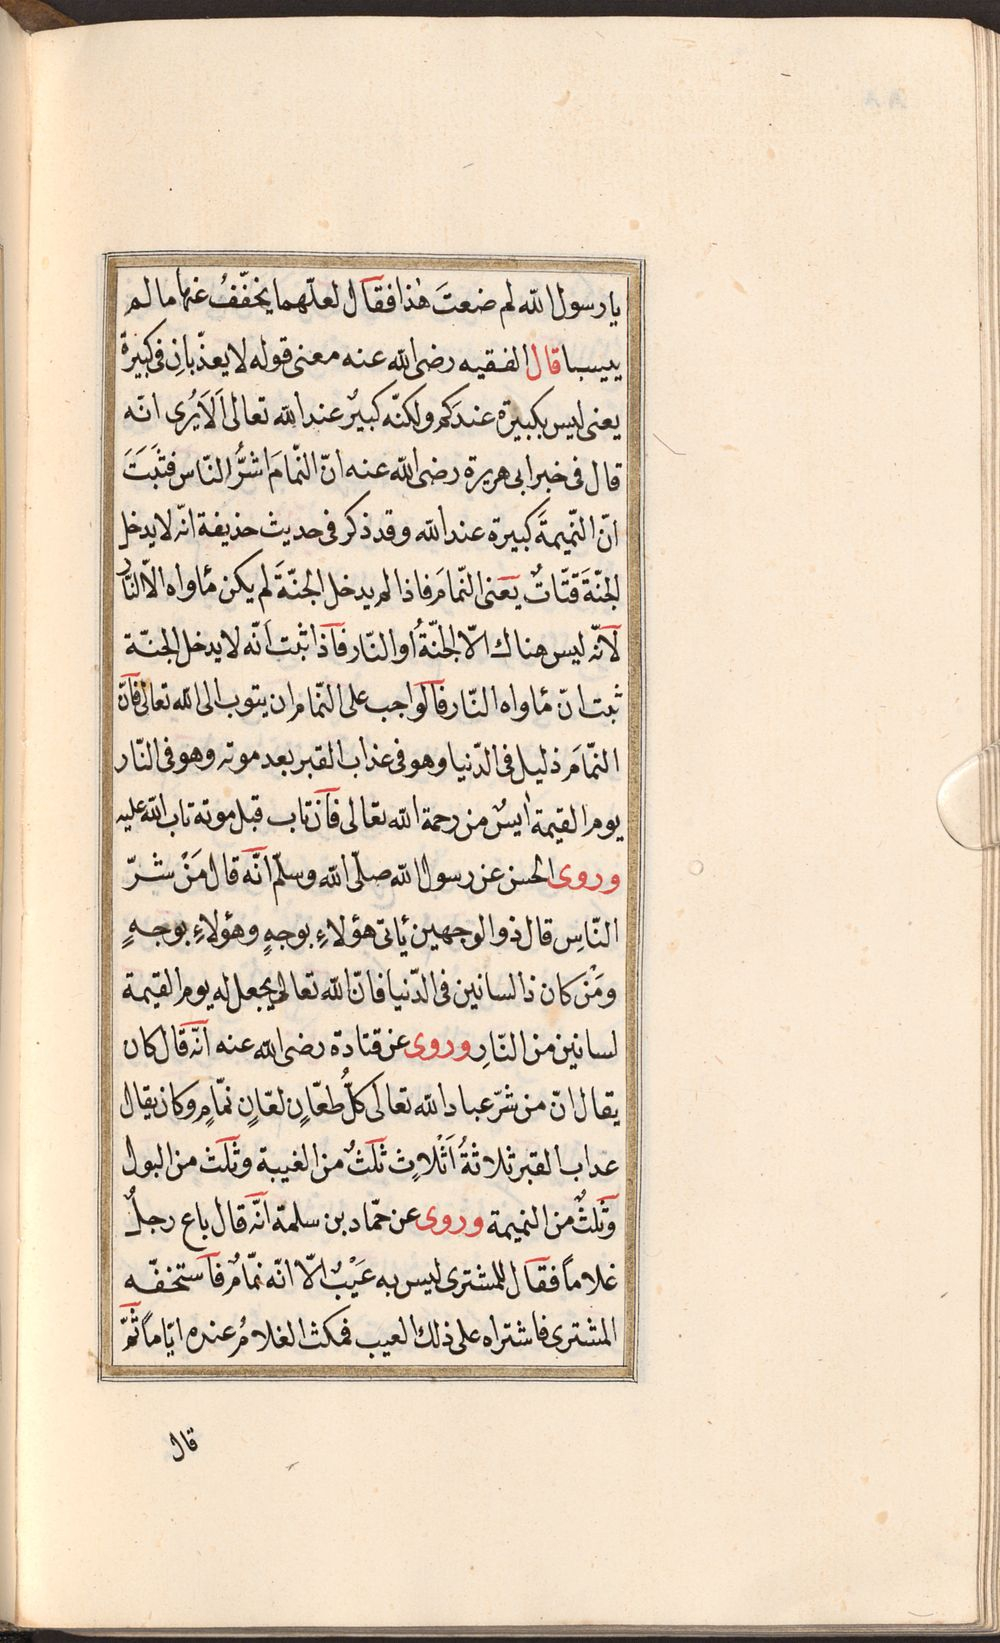 يا رسول الله لم ضعتَ هٰذا فقال لعلّهما يخفّفُ عنهما ما لم
ييبسا قال الفقيه رضى الله عنه معنى قوله لا يعذّبانِ فى كبيرة
يعنى ليس بكبيرة عندكم ولكنّه كبيرٌ عند الله تعالى اَلَا يُرى انّه
قال فى خبر ابى هريرة رضى الله عنه انّ النّمامَ اشرُّ النّاس فثَبَتَ
انّ النّميمةَ كبيرة عند الله وقد ذكر فى حديث حذيفة انّه لا يدخل
الجنّةَ قتّاتٌ يعنى النّمامَ فاذا لم يدخل الجنّةَ لم يكن مأواه الّا النّار
لانّه ليس هناك الّا الجنّةُ او النّار فاذا ثبت اَنّه لا يدخل الجنّة
ثبت انّ مأواه النّار فالواجب على النّمام ان يتوب الى الله تعالى فانّ
النمّامَ ذليل فى الدّنيا وهو فى عذاب القبر بعد موته وهو فى النّار
يوم القيمة اٰيسٌ من رحمة الله تعالى فان تاب قبل موته تاب الله عليه
وروى الحسن عن رسول الله صلّى الله وسلّم انّه قال مَنْ شرّ
النّاسِ قال ذو الوجهين يأتى هؤلاءِ بوجهٍ وهؤلاءِ بوجهٍ
ومَنْ كان ذا لسانين فى الدّنيا فانّ الله تعالى يجعل له يوم القيمة
لسانين من النّارِ وروى عن قتادة رضى الله عنه انّه قال كان
يقال انّ من شرّ عباد الله تعالى كلُّ طعّانٍ لعّانٍ نمّامٍ وكان يقال
عذاب القبر ثلاثةُ اَثْلاثٍ ثلثٌ من الغيبة وثلث من البول
وثلثٌ من النميمة وروى عن حمّاد بن سلمة انّه قال باع رجلٌ
غلاماً فقال للمشترى ليس به عَيْبٌ الّا انّه نمّامٌ فاستخفّه
المشترى فاشتراه على ذلك العيب فمكث الغلامُ عنده ايّاماً ثمّ
قال